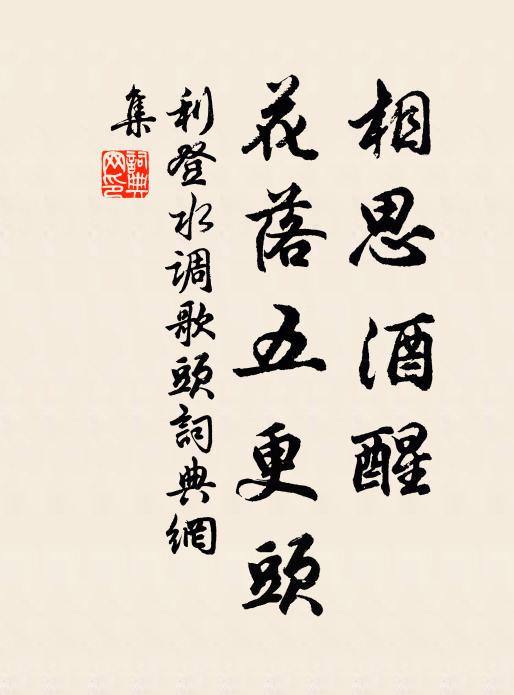 相思酒醒
花落五更頭
利登水调歌頭詞典網
集
詞典網印